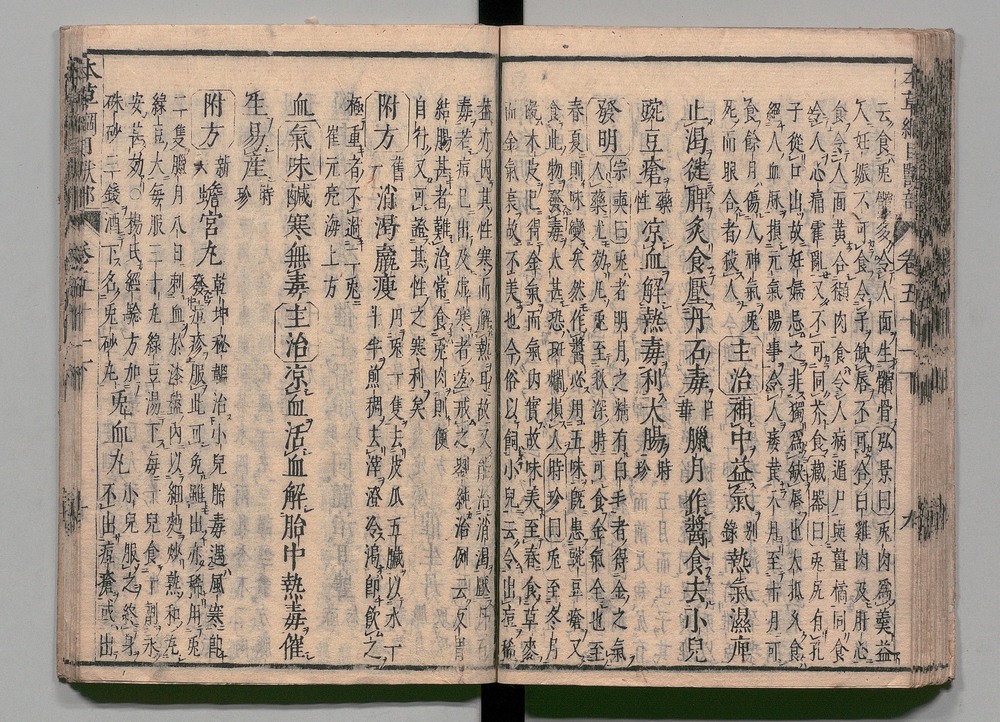 云食兎髕多令人面生髕骨弘景曰兎肉爲羹益
人妊娠不可食令子缺唇不可合白雞肉及肝心
食令人面黄合獺肉食令人病遁尸與薑橘同食
令人心痛霍亂又不可同芥食藏器曰兎尻有孔
子從口出故妊婦忌之非獨爲缺唇也大抵久食
絶人血脉損元氣陽事令人痿黄八月至十月可
食餘月傷人神氣兎
死而眼合者殺人 主治補中益氣別録熱氣濕痺
止渴健脾炙食壓丹石毒日華臘月作醬食去小兒
豌豆瘡藥性凉血解熱毒利大腸時珍
發明宗奭曰兎者明月之精有白毛者得金之氣
入藥尤効凡兎至秋深時可食金氣全也至
春夏則味變矣然作醬必用五味既患豌豆瘡又
食此物發毒太甚恐斑爛損人時珍曰兎至冬月
齕木皮已得金氣而氣内實故味美至春食草麥
而金氣衰故不美也今俗以飼小兒云令出痘稀
蓋亦因其性寒而解熱耳故又能治消渴壓丹石
毒若痘已出及虚寒者宜戒之劉純治例云反胃
結腸甚者難治常食兎肉則便
自行又可證其性之寒利矣
附方舊一消渴羸瘦用兎一隻去皮爪五臟以水一
斗半煎稠去滓澄冷渴即飲之
極重者不過二兎
崔元亮海上方
血氣味鹹寒無毒主治凉血活血解胎中熱毒催
生易産時珍
附方新六蟾宮丸乾坤秘韞治小兒胎毒遇風寒即
發痘疹服此可免雖出亦稀用兎
二隻臘月八日刺血於漆盤内以細麪炒熟和丸
緑豆大毎服三十丸緑豆湯下毎一兒食一劑永
安甚効○楊氏經驗方加
硃砂二錢酒下名兎砂丸 兎血丸小兒服之終身
不出痘瘡或出